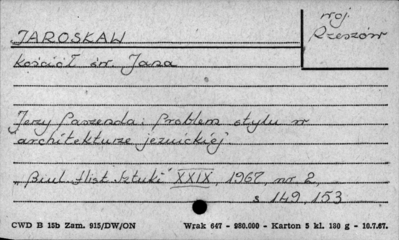 JAROSŁAW
woj.
Rzeszów
Kościół św. Jana
Jerzy Paszenda: Problem stylu w
architekturze jezuickiej.
„Biul. Hist. Sztuki" XXIX, 1967, nr 2,
s 149, 153
CWD B 15b Zam. 915/DW/ON
Wrak 647 - 980.000 - Karton 5 kl. 180 g - 10.7.67.